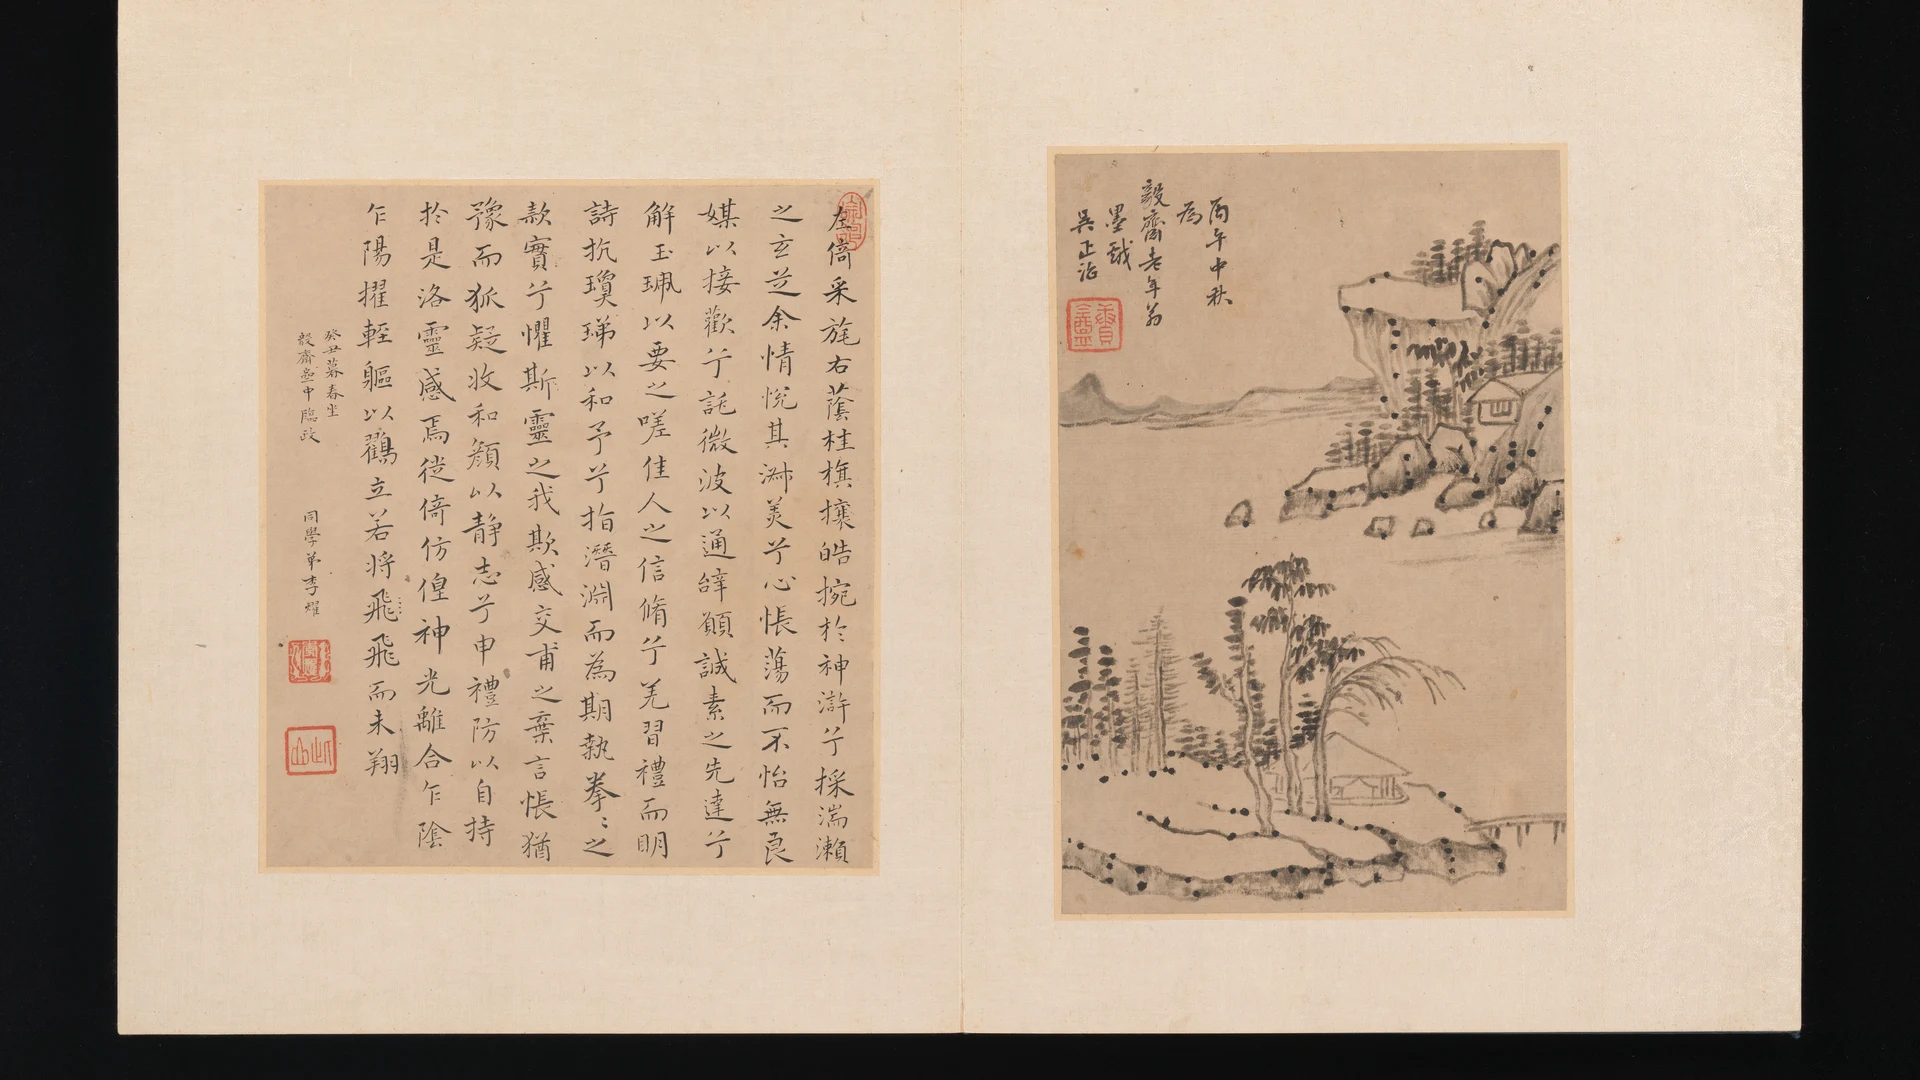 丙午中秋
為
毅齋老年翁
墨戲
吳正治
左倚采旄右蔭桂旗攘皓捥於神滸兮採湍瀨
之玄芝余情悅其淑美兮心悵蕩而不怡無良
媒以接歡兮託微波以通辭願誠素之先達兮
解玉珮以要之嗟佳人之信脩兮羌習禮而明
詩抗瓊珶以和予兮指潛淵而為期執拳〻之
款實兮懼斯靈之我欺感交甫之棄言悵猶
豫而狐疑收和顏以静志兮申禮防以自持
於是洛靈感焉徙倚仿偟神光離合乍陰
乍陽擢輕軀以鶴立若將飛飛而未翔
癸丑暮春坐
毅齋壺中臨政
同學弟李燿